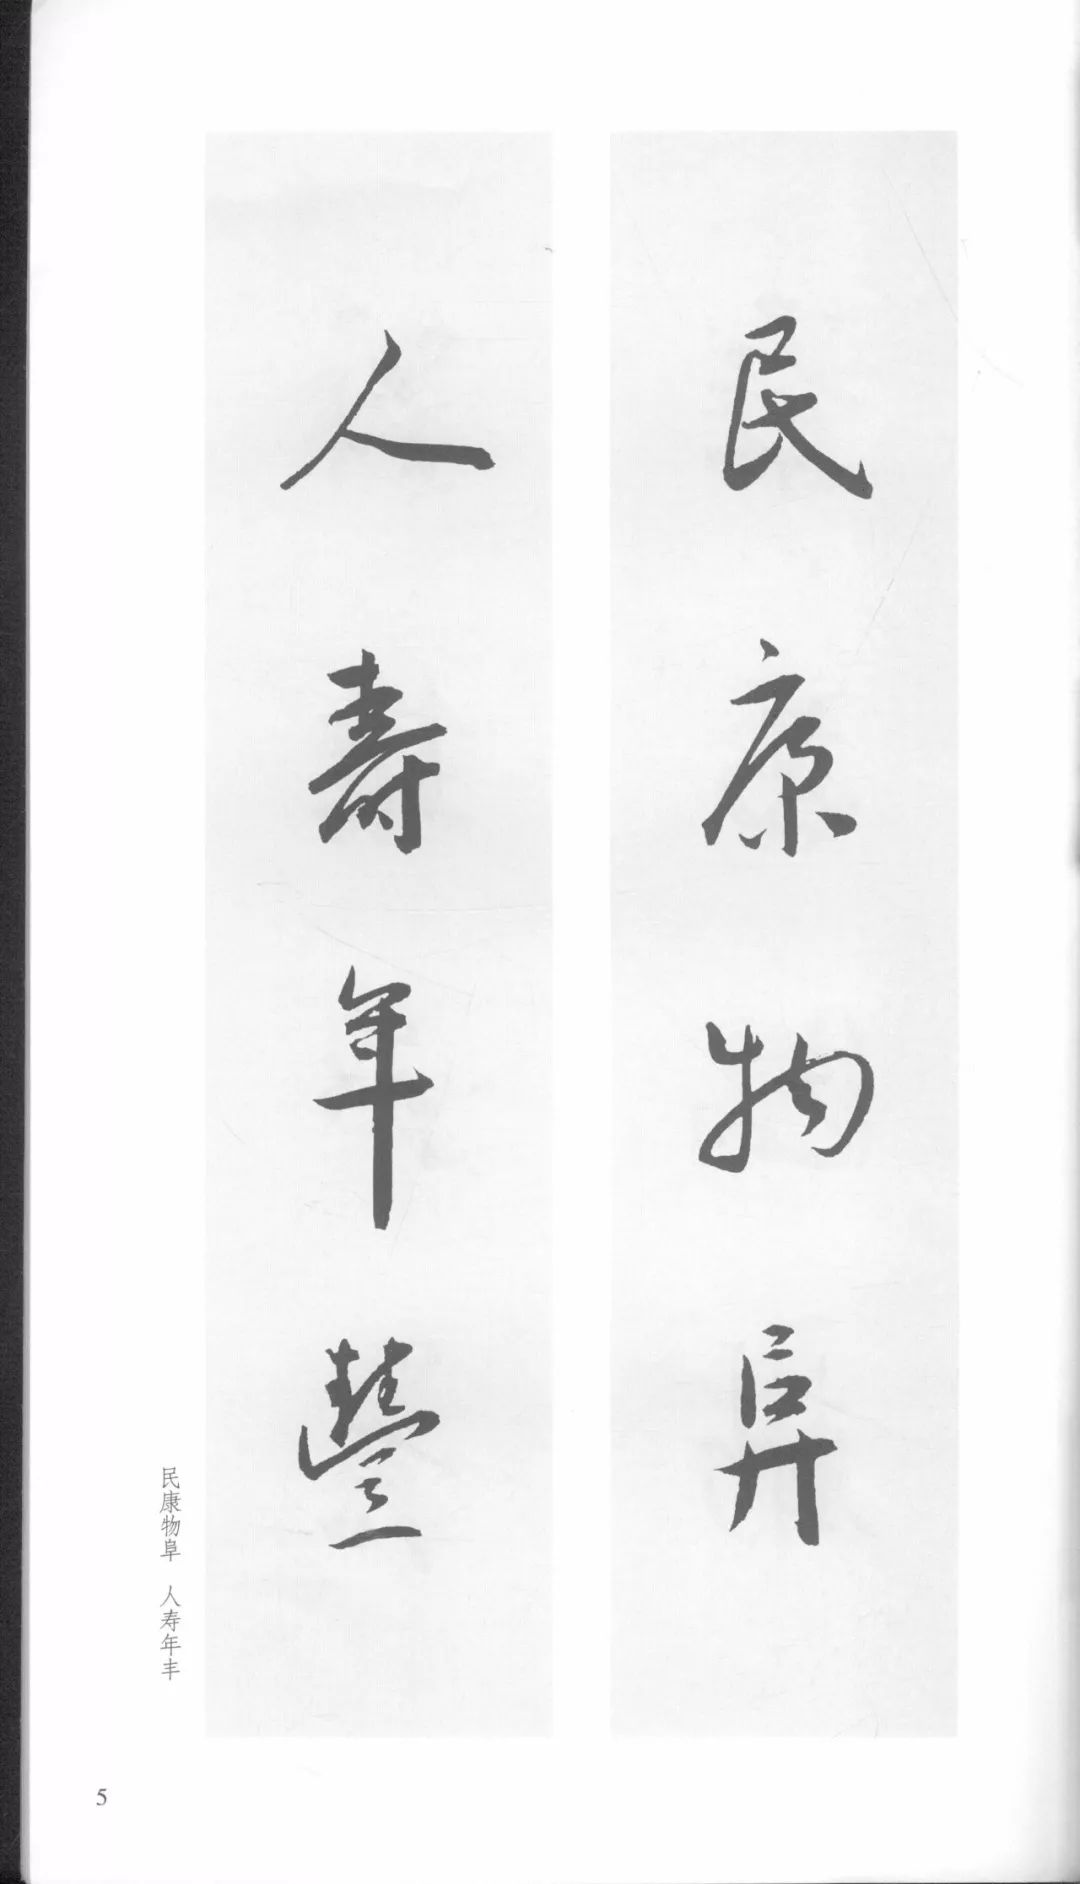 民康物阜
人壽年豐
民康物阜 人寿年丰
5